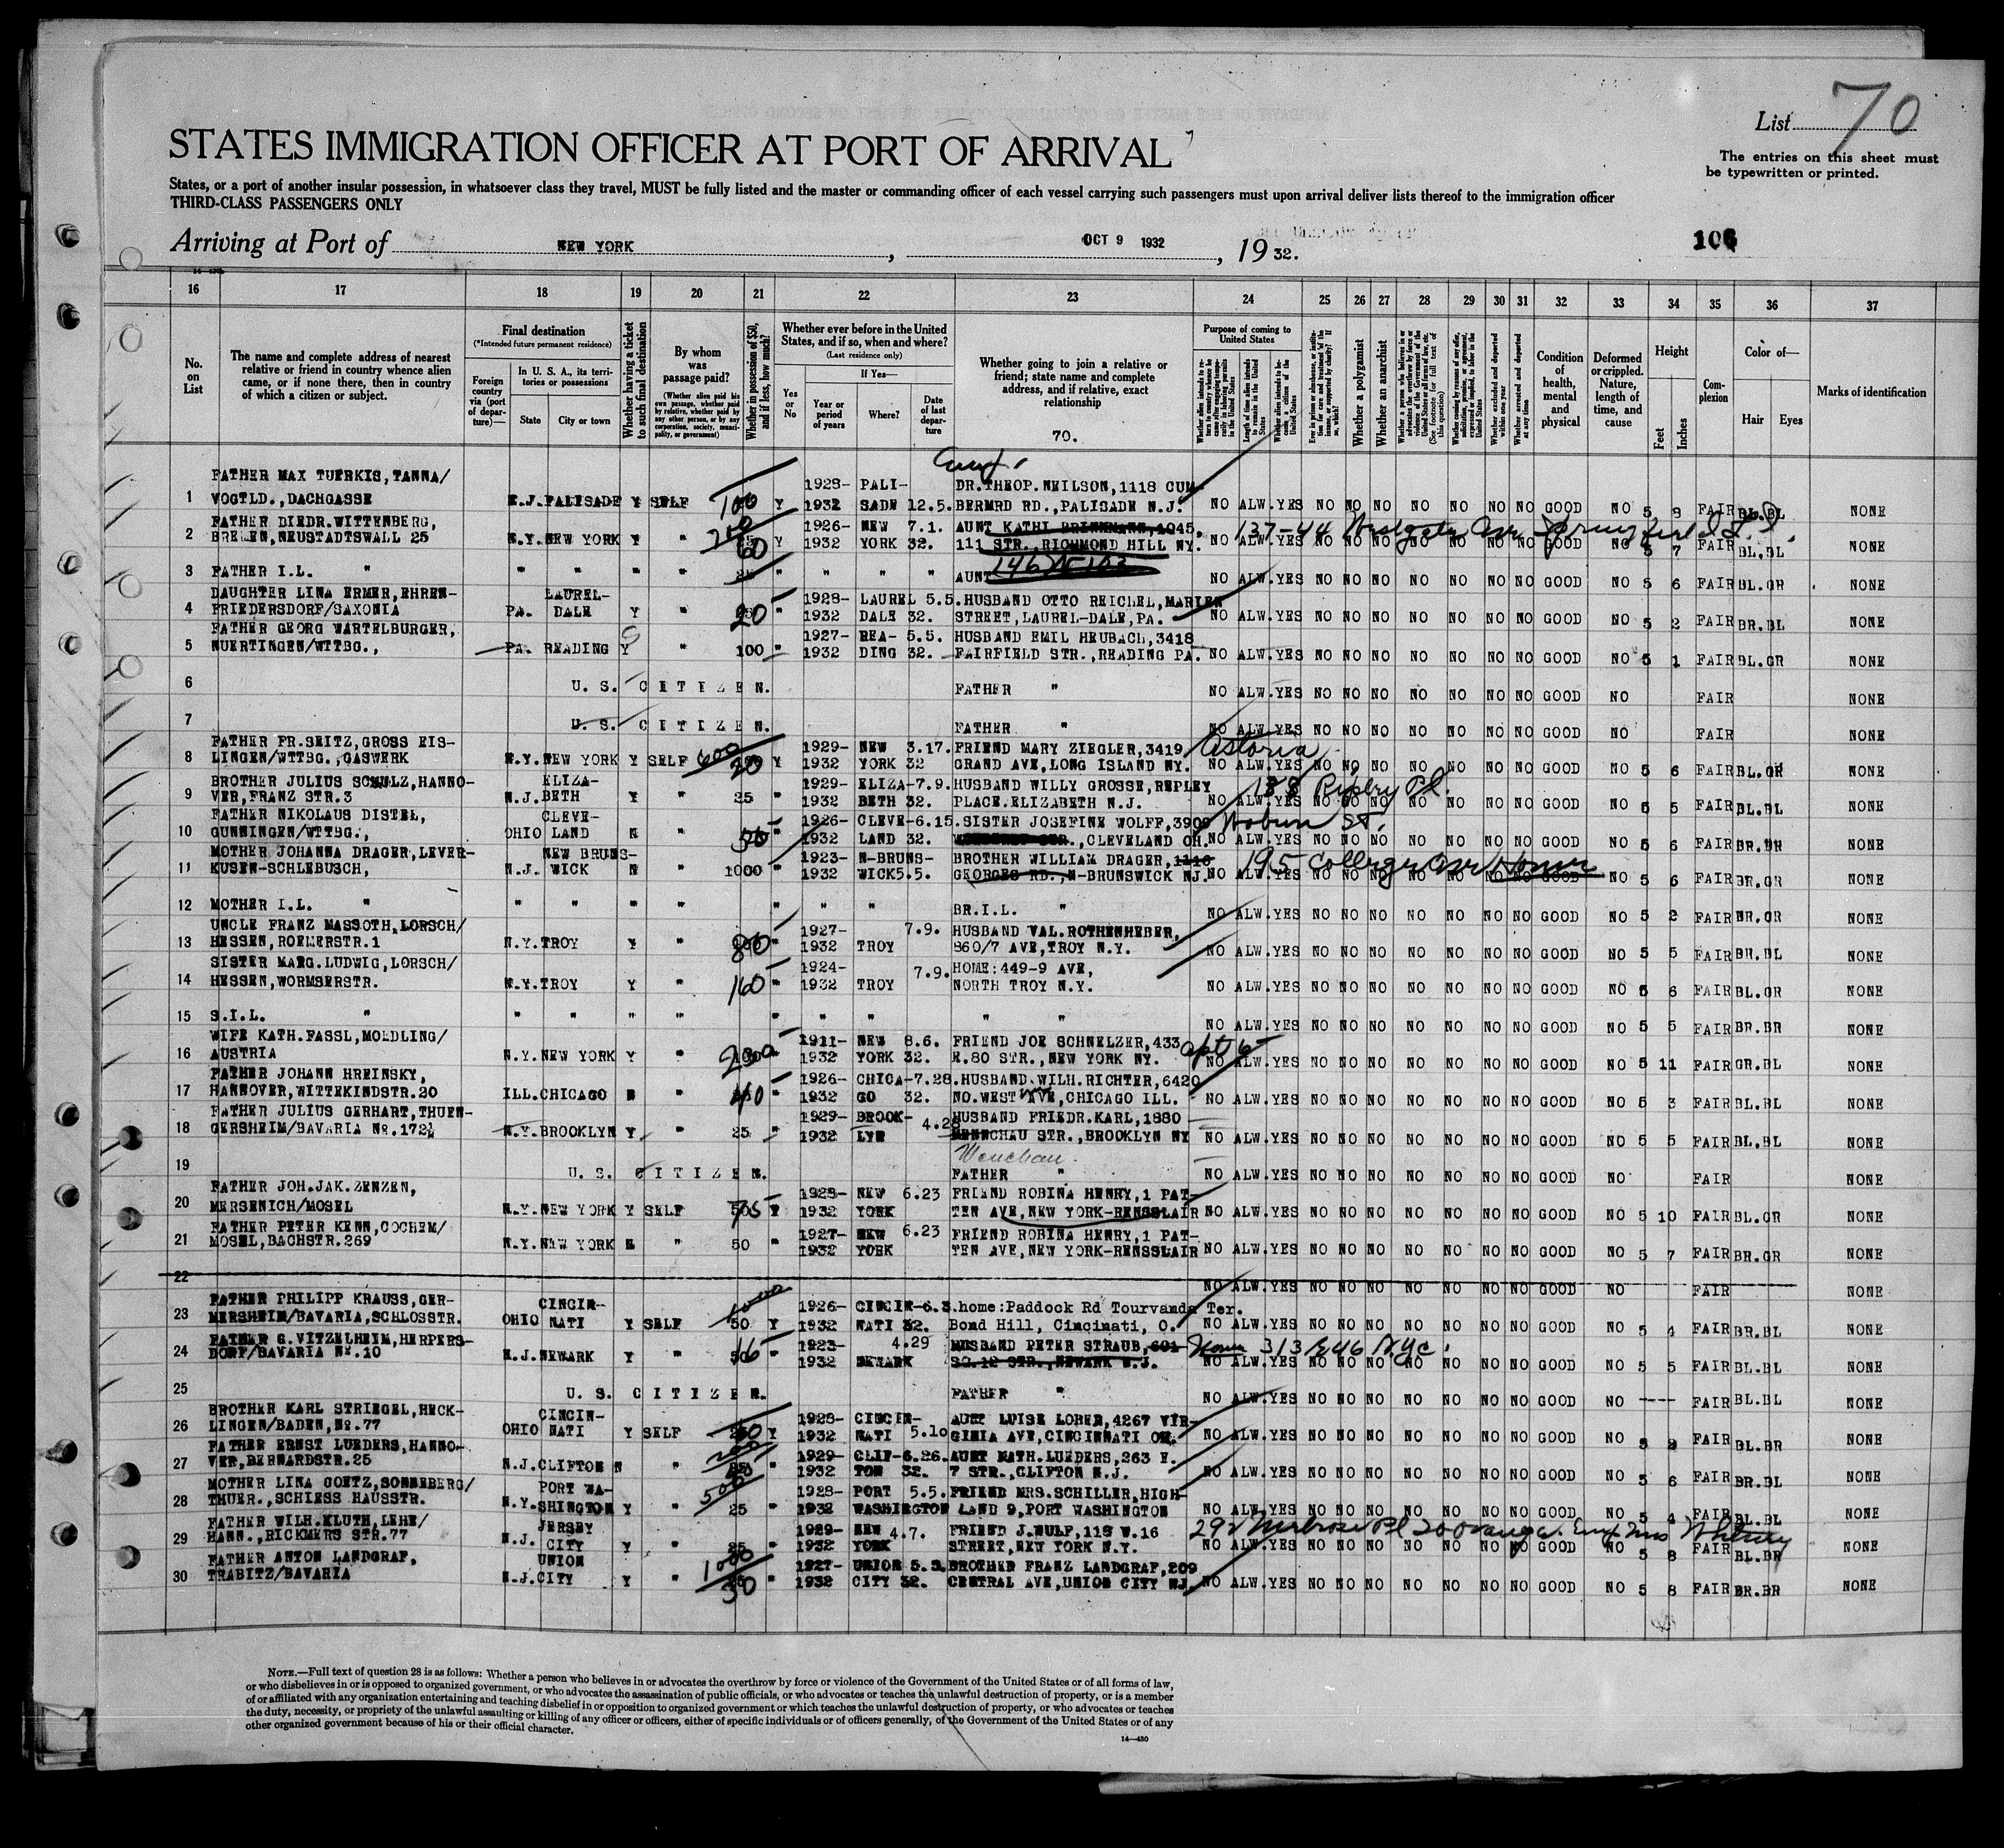 List 70
The entries on this sheet must
be typewritten or printed.
STATES IMMIGRATION OFFICER AT PORT OF ARRIVAL
States, or a port of another insular possession, in whatsoever class they travel, MUST be fully listed and the master or commanding officer of each vessel carrying such passengers must upon arrival deliver lists thereof to the immigration officer
THIRD-CLASS PASSENGERS ONLY
Arriving at Port of NEW YORK, OCT 9 1932, 19 32. 106
16 17 18 19 20 21 22 23 24 25 26 27 28 29 30 31 32 33 34 35 36 37
No. on List
The name and complete address of nearest relative or friend in country whence alien came, or if none there, then in country of which a citizen or subject.
Final destination
(*Intended future permanent residence)
Foreign country via (port of departure)—
In U. S. A., its territories or possessions
State City or town
Whether having a ticket to such final destination
By whom was passage paid?
(Whether alien paid his own passage, whether paid by relative, whether paid by any other person, or by any corporation, society, municipality, or government)
Whether in possession of $50, and if less, how much?
Whether ever before in the United States, and if so, when and where?
(Last residence only)
If Yes—
Yes or No
Year or period of years
Where?
Date of last departure
Whether going to join a relative or friend; state name and complete address, and if relative, exact relationship
70.
Purpose of coming to United States
Whether a polygamist
Whether an anarchist
Whether excluded and deported within one year
Whether arrested and deported at any time
Condition of health, mental and physical
Deformed or crippled. Nature, length of time, and cause
Height
Feet Inches
Complexion
Color of—
Hair Eyes
Marks of identification
FATHER MAX TUERKIS, TANNA/ 1928- PALI- DR.THEOP.NEILSON,1118 CUM-
1 VOGTLD.,DACHGASSE N.J.PALISADE Y SELF 100 Y 1932 SADE 12.5. BERMRD RD.,PALISADE N.J. NO ALW.YES NO NO NO NO NO NO NO GOOD NO 5 8 FAIR BL.BL NONE
FATHER DIEDR.WITTENBERG, 1926- NEW 7.1. AUNT KATHI BRINKMANN,1045,
2 BREMEN,NEUSTADTSWALL 25 N.Y.NEW YORK Y " 60 Y 1932 YORK 32. 111 STR.,RICHMOND HILL NY. NO ALW.YES NO NO NO NO NO NO NO GOOD NO 5 7 FAIR BL.BL NONE
3 FATHER I.L. " " " " " " " " AUNT NO ALW.YES NO NO NO NO NO NO NO GOOD NO 5 6 FAIR BL.GR NONE
DAUGHTER LINA ERMER,EHREN- LAUREL- 1928- LAUREL 5.5. HUSBAND OTTO REICHEL,MARIEN
4 FRIEDERSDORF/SAXONIA PA. DALE Y " 20 " 1932 DALE 32. STREET,LAUREL-DALE,PA. NO ALW.YES NO NO NO NO NO NO NO GOOD NO 5 2 FAIR BR.BL NONE
FATHER GEORG WARTELBURGER, 1927- REA- 5.5. HUSBAND EMIL HEUBACH,3418
5 NUERTINGEN/WTTBG., PA. READING Y " 100 " 1932 DING 32. FAIRFIELD STR.,READING PA. NO ALW.YES NO NO NO NO NO NO NO GOOD NO 5 1 FAIR BL.GR NONE
6 U. S. C I T I Z E N. FATHER " NO ALW.YES NO NO NO NO NO NO NO GOOD NO FAIR NONE
7 U. S. C I T I Z E N. FATHER " NO ALW.YES NO NO NO NO NO NO NO GOOD NO FAIR NONE
FATHER FR.SEITZ,GROSS EIS- 600 1929- NEW 3.17. FRIEND MARY ZIEGLER,3419 Astoria
8 LINGEN/WTTBG.,GASWERK N.Y.NEW YORK Y SELF 20 Y 1932 YORK 32 GRAND AVE,LONG ISLAND NY. NO ALW.YES NO NO NO NO NO NO NO GOOD NO 5 6 FAIR BL.GR NONE
BROTHER JULIUS SCHULZ,HANNO- ELIZA- 1929- ELIZA-7.9. HUSBAND WILLY GROSSE,REPLEY 188 Ripley Pl.
9 VER,FRANZ STR.3 N.J.BETH Y " 25 " 1932 BETH 32. PLACE.ELIZABETH N.J. NO ALW.YES NO NO NO NO NO NO NO GOOD NO 5 5 FAIR BL.BL NONE
FATHER NIKOLAUS DISTEL, CLEVE- 1926- CLEVE-6.15. SISTER JOSEFINE WOLFF,3909
10 GUNNINGEN/WTTBG., OHIO LAND N " " 1932 LAND 32. CLEVELAND OH. NO ALW.YES NO NO NO NO NO NO NO GOOD NO 5 6 FAIR BR.BR NONE
MOTHER JOHANNA DRAGER,LEVER- NEW BRUNS- 1923- N-BRUNS- BROTHER WILLIAM DRAGER,1116 195 College Ave Home
11 KUSEN-SCHLEBUSCH, N.J. WICK N " 1000 " 1932 WICK5.5. GEORGES RD.,N-BRUNSWICK NJ. NO ALW.YES NO NO NO NO NO NO NO GOOD NO 5 6 FAIR BR.GR NONE
12 MOTHER I.L. " " " " " " " " BR.I.L. " NO ALW.YES NO NO NO NO NO NO NO GOOD NO 5 2 FAIR BR.GR NONE
UNCLE FRANZ MASSOTH,LORSCH/ 1927- 7.9. HUSBAND VAL.ROTHENHEBER,
13 HESSEN,ROEMERSTR.1 N.Y.TROY Y " 80 " 1932 TROY 860/7 AVE,TROY N.Y. NO ALW.YES NO NO NO NO NO NO NO GOOD NO 5 5 FAIR BR.BL NONE
SISTER MARG.LUDWIG,LORSCH/ 1924- 7.9. HOME:449-9 AVE,
14 HESSEN,WORMSERSTR. N.Y.TROY Y " 160 " 1932 TROY NORTH TROY N.Y. NO ALW.YES NO NO NO NO NO NO NO GOOD NO 5 6 FAIR BL.GR NONE
15 S.I.L. " " " " " " " " " " NO ALW.YES NO NO NO NO NO NO NO GOOD NO 5 5 FAIR BR.BR NONE
WIFE KATH.FASSL,MOEDLING/ 1911- NEW 8.6. FRIEND JOE SCHNELZER,433 apt 6
16 AUSTRIA N.Y.NEW YORK Y " 230 " 1932 YORK 32. E.80 STR.,NEW YORK NY. NO ALW.YES NO NO NO NO NO NO NO GOOD NO 5 11 FAIR GR.BL NONE
FATHER JOHANN HREINSKY, 1926- CHICA-7.28. HUSBAND WILH.RICHTER,6420
17 HANNOVER,WITTEKINDSTR.20 ILL.CHICAGO N " 40 " 1932 GO 32. NO.WEST AVE,CHICAGO ILL. NO ALW.YES NO NO NO NO NO NO NO GOOD NO 5 3 FAIR BL.BL NONE
FATHER JULIUS GERHART,THUEN- 1929- BROOK- 4.28 HUSBAND FRIEDR.KARL,1880
18 GERSHEIM/BAVARIA No.172½ N.Y.BROOKLYN Y " 25 " 1932 LYN STR.,BROOKLYN NY NO ALW.YES NO NO NO NO NO NO NO GOOD NO 5 5 FAIR BL.BL NONE
19 U. S. C I T I Z E N. FATHER " NO ALW.YES NO NO NO NO NO NO NO GOOD NO FAIR NONE
FATHER JOH.JAK.ZENZEN, 1928- NEW 6.23 FRIEND ROBINA HENRY,1 PAT-
20 MERSENICH/MOSEL N.Y.NEW YORK Y SELF 75 Y 1932 YORK TEN AVE,NEW YORK-RENSSLAIR NO ALW.YES NO NO NO NO NO NO NO GOOD NO 5 10 FAIR BL.GR NONE
FATHER PETER KENN,COCHEM/ 1927- NEW 6.23 FRIEND ROBINA HENRY,1 PAT-
21 MOSEL,BACHSTR.269 N.Y.NEW YORK N " 50 " 1932 YORK TEN AVE,NEW YORK-RENSSLAIR NO ALW.YES NO NO NO NO NO NO NO GOOD NO 5 7 FAIR BR.GR NONE
22 NO ALW.YES NO NO NO NO NO NO NO GOOD NO FAIR NONE
FATHER PHILIPP KRAUSS,GER- CINCIN- 1926- CINCIN-6.3. home:Paddock Rd Tourvanda Ter.
23 MERSHEIM/BAVARIA,SCHLOSSTR. OHIO NATI Y SELF 50 Y 1932 NATI 32. Bond Hill, Cincinati, O. NO ALW.YES NO NO NO NO NO NO NO GOOD NO 5 4 FAIR BR.BL NONE
FATHER G.VITZELHEIM,HERPERS- 1923- 4.29 HUSBAND PETER STRAUB,601 Home 313 E 46 N.Y.C.
24 DORF/BAVARIA No.10 N.J.NEWARK Y " " 1932 NEWARK SO.12 STR.,NEWARK N.J. NO ALW.YES NO NO NO NO NO NO NO GOOD NO 5 5 FAIR BL.BL NONE
25 U. S. C I T I Z E N. FATHER " NO ALW.YES NO NO NO NO NO NO NO GOOD NO ---- FAIR BL.BL NONE
BROTHER KARL STRIEGEL,HECK- CINCIN- 1928- CINCIN- AUNT LUISE LOBER,4267 VIR-
26 LINGEN/BADEN,No.77 OHIO NATI Y SELF Y 1932 NATI 5.10 GINIA AVE,CINCINNATI OH. NO ALW.YES NO NO NO NO NO NO NO GOOD NO 5 2 FAIR BL.BR NONE
FATHER ERNST LUEDERS,HANNO- 1929- CLIF-6.26. AUNT MATH.LUEDERS,263 E.
27 VER,BERNARDSTR.25 N.J.CLIFTON N " " 1932 TON 32. 7 STR.,CLIFTON N.J. NO ALW.YES NO NO NO NO NO NO NO GOOD NO 5 6 FAIR BR.BL NONE
MOTHER LINA GOETZ,SONNEBERG/ PORT WA- 500 1928- PORT 5.5. FRIEND MRS.SCHILLER,HIGH-
28 THUER.,SCHIESS HAUSSTR. N.Y.SHINGTON Y " 25 " 1932 WASHINGTON LAND 9,PORT WASHINGTON NO ALW.YES NO NO NO NO NO NO NO GOOD NO 5 4 FAIR BL.BL NONE
FATHER WILH.KLUTH,LEHE/ JERSEY 1929- NEW 4.7. FRIEND J.WULF,118 W.16
29 HANN.,RICKMERS STR.77 N.J. CITY Y " 25 " 1932 YORK STREET,NEW YORK N.Y. NO ALW.YES NO NO NO NO NO NO NO GOOD NO 5 8 FAIR BL.BR NONE
FATHER ANTON LANDGRAF, UNION 1000 1927- UNION 5.3. BROTHER FRANZ LANDGRAF,209
30 TRABITZ/BAVARIA N.J.CITY Y " 50 " 1932 CITY 32. CENTRAL AVE,UNION CITY NJ. NO ALW.YES NO NO NO NO NO NO NO GOOD NO 5 8 FAIR BR.BR NONE
NOTE.—Full text of question 28 is as follows: Whether a person who believes in or advocates the overthrow by force or violence of the Government of the United States or of all forms of law,
or who disbelieves in or is opposed to organized government, or who advocates the assassination of public officials, or who advocates or teaches the unlawful destruction of property, or is a member
of or affiliated with any organization entertaining and teaching disbelief in or opposition to organized government or which teaches the unlawful destruction of property, or who advocates or teaches
the duty, necessity, or propriety of the unlawful assaulting or killing of any officer or officers, either of specific individuals or of officers generally, of the Government of the United States or of any
other organized government because of his or their official character.
14—430